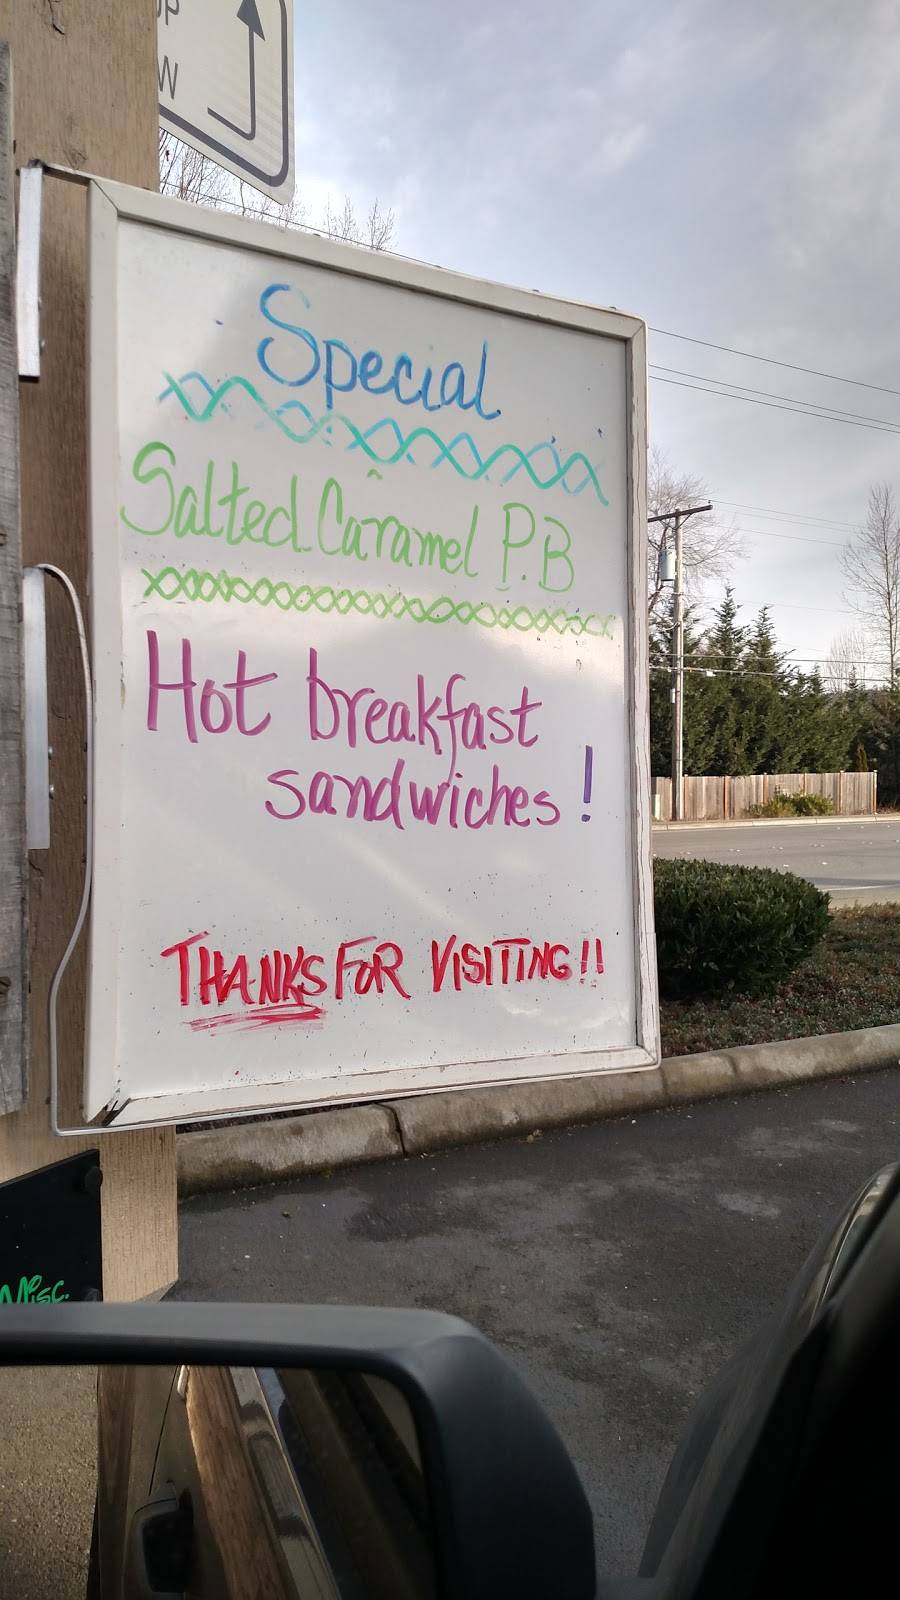 W
Special
Salted Caramel P.B
Hot breakfast
sandwiches!
THANKS FOR VISITING!!
Misc.